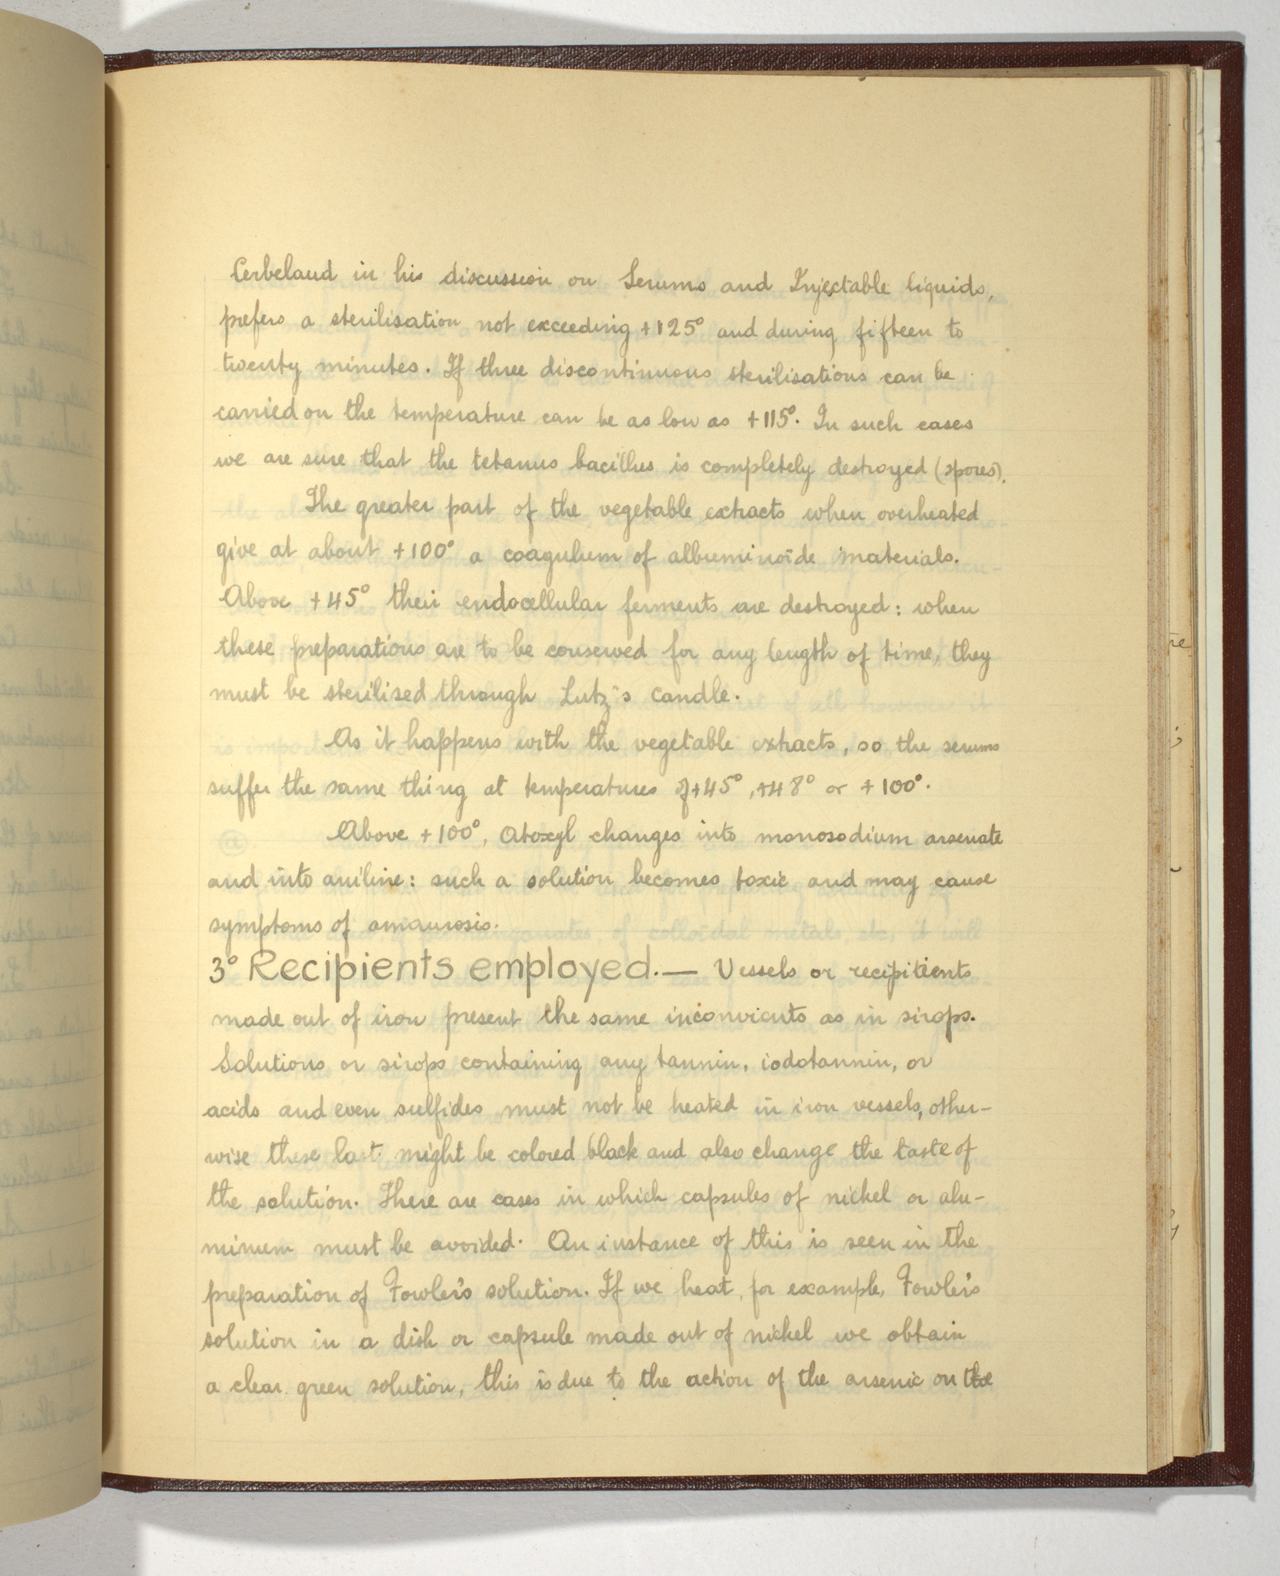 Cerbelaud in his discussion on Serums and Injectable liquids,
prefers a sterilisation not exceeding +125° and during fifteen to
twenty minutes. If three discontinuous sterilisations can be
carried on the temperature can be as low as +115°. In such cases
we are sure that the tetanus bacillus is completely destroyed (spores).
The greater part of the vegetable extracts when overheated
give at about +100° a coagulum of albuminoïde materials.
Above +45° their endocellular ferments are destroyed: when
these preparations are to be conserved for any length of time, they
must be sterilised through Lutz's candle.
As it happens with the vegetable extracts, so the serums
suffer the same thing at temperatures of +45°, +48° or +100°.
Above +100°, Atoxyl changes into monosodium arsenate
and into aniline: such a solution becomes toxic and may cause
symptoms of amaurosis.
3° Recipients employed.— Vessels or recipitients
made out of iron present the same inconvients as in sirops.
Solutions or sirops containing any tannin, iodotannin, or
acids and even sulfides must not be heated in iron vessels, other-
wise these last might be colored black and also change the taste of
the solution. There are cases in which capsules of nickel or alu-
minum must be avoided. An instance of this is seen in the
preparation of Fowler's solution. If we heat, for example, Fowler's
solution in a dish or capsule made out of nickel we obtain
a clear green solution, this is due to the action of the arsenic on the